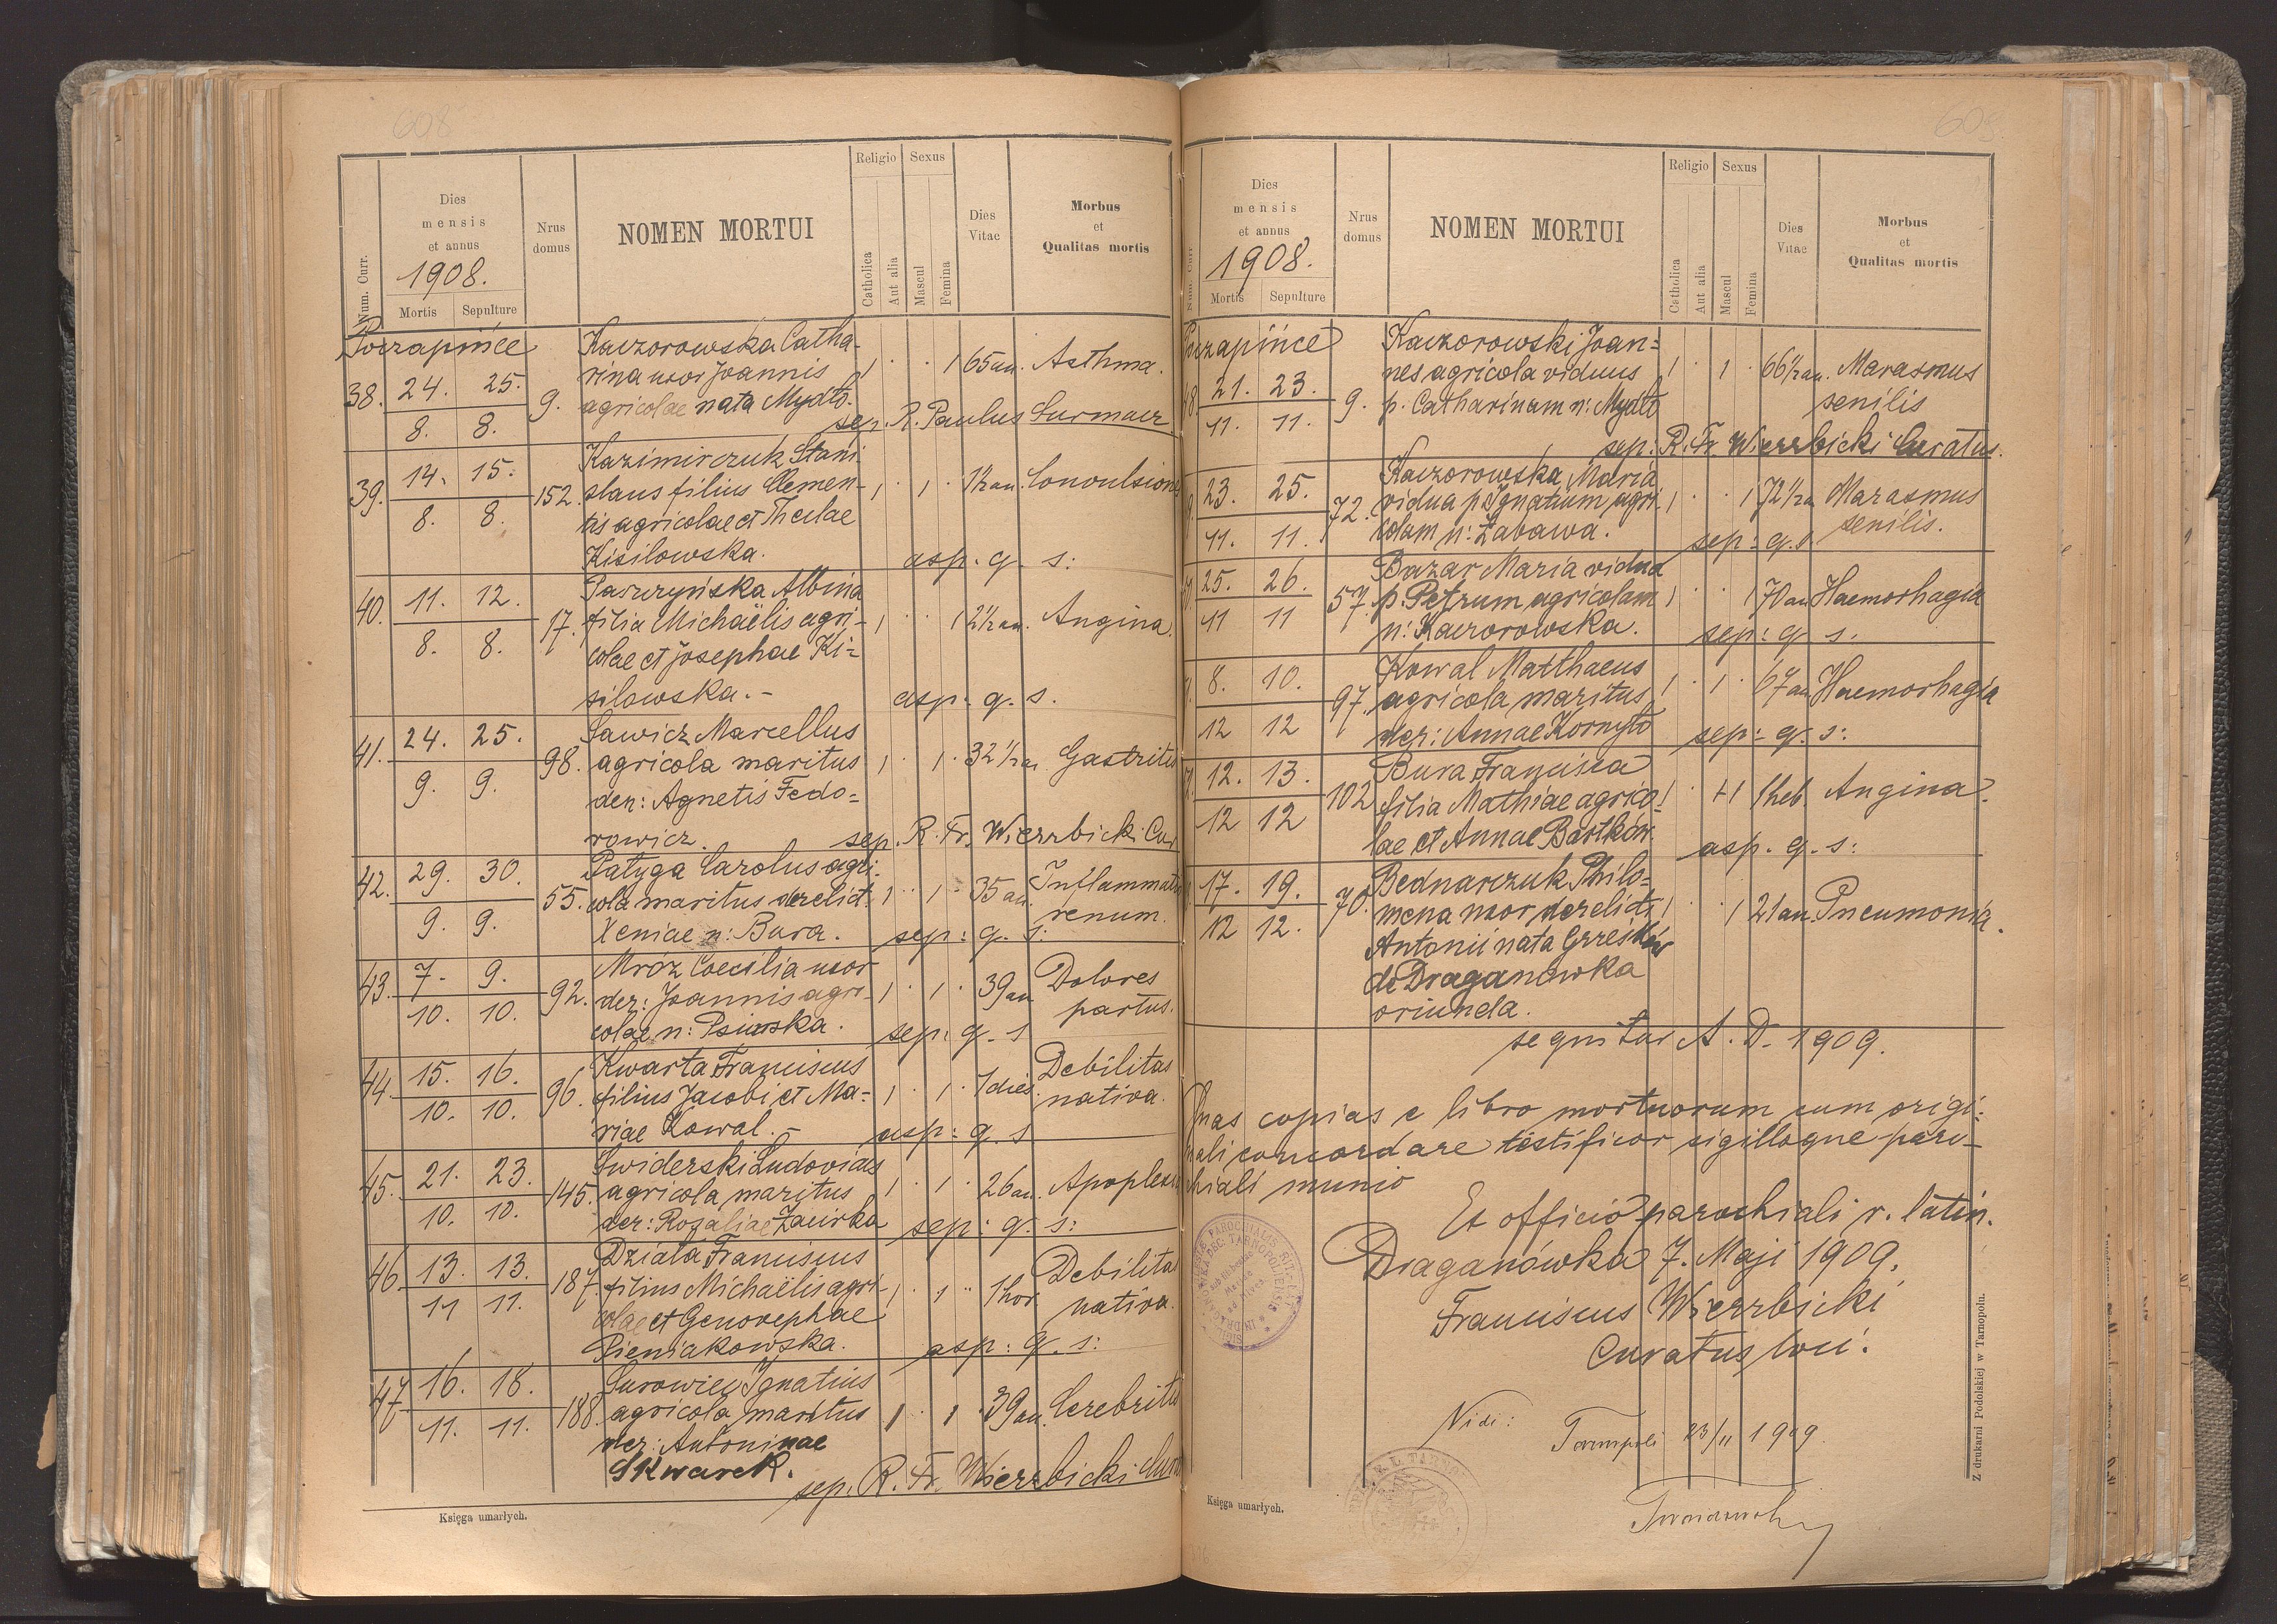 608
Num. Curr.
Dies
mensis
et annus
1908.
Mortis Sepulture
Nrus
domus
NOMEN MORTUI
Religio Sexus
Catholica
Aut alia
Mascul
Femina
Dies
Vitae
Morbus
et
Qualitas mortis
Poczapińce
38. 24. 25. 9. Kaczorowska Catha-
8. 8. rina uxor Joannis 1 · · 1 65 an. Asthma.
agricolae nata Mydło.
sep. R. Paulus Surmacz
39. 14. 15. 152. Kazimirczuk Stani-
8. 8. slaus filius Clemen- 1 · 1 · 1½ an. Convulsiones
tis agricolae et Theclae
Kisilowska. asp. q. s:
40. 11. 12. 17. Paszzyńska Albina
8. 8. filia Michaëlis agri- 1 · · 1 2½ an. Angina.
colae et Josephae Ki=
silowska. - asp. q. s.
41. 24. 25. 98. Sawicz Marcellus
9. 9. agricola maritus 1 · 1 · 32½ an Gastritis
der: Agnetis Fedo=
rowicz. sep. R. Fr. Wierzbicki Cur
42. 29. 30. 55. Patyga Carolus agri-
9. 9. cola maritus derelict. 1 · 1 · 35 an. Inflammatio
renum.
Xeniae n: Bura. sep: q. s:
43. 7. 9. 92. Mróz Coecilia uxor
10. 10. der: Joannis agri- 1 · 1 · 39 an Dolores
partus.
colae n: Psiurska. sep: q. s
44. 15. 16. 96. Kwarta Franciscus
10. 10. filius Jacobi et Ma- 1 · 1 · 7 dies. Debilitas
nativa.
riae Kowal. - asp: q. s
45. 21. 23. 145. Swiderski Ludovicus
10. 10. agricola maritus 1 · 1 · 26 an. Apoplexia
der: Rosaliae Zacirka sep: q. s:
46. 13. 13. 187. Dziala Franciscus
11 11. filius Michaëlis agri- 1 · 1 · 1 hor Debilitas
nativa.
colae et Genovephae
Pieniakowska. asp: q. s:
47. 16. 18. 188. Surowiec Ignatius
11. 11. agricola maritus 1 · 1 · 39 an. Cerebritis
der: Antoninae
Skwarek.
sep. R. Fr. Wierzbicki
Księga umarłych.
60
Num. Curr
Dies
mensis
et annus
1908.
Mortis Sepulture
Nrus
domus
NOMEN MORTUI
Religio Sexus
Catholica
Aut alia
Mascul
Femina
Dies
Vitae
Morbus
et
Qualitas mortis
Poczapińce
48. 21. 23. 9. Kaczorowski Joan=
11. 11. nes agricola viduus 1 · 1 · 66½ an. Marasmus
senilis
p. Catharinam n: Mydło
sep: R. Fr. Wierzbicki Curatus.
23. 25. 72. Kaczorowska Maria
11. 11. vidua p. Ignatium agri- 1 · · 1 72½ a Marasmus
senilis.
colam n: Zabawa. sep: q. s
25. 26. 57. Buzar Maria vidua
11 11 p. Petrum agricolam 1 · · 1 70 an Haemorhagia
n: Kaczorowska. sep: q s.
8. 10. 97. Kowal Matthaeus
12 12 agricola maritus 1 · 1 · 67 an Haemorhagia
der: Annae Kornyło sep: q. s:
12. 13. 102 Bura Francisca
12 12 filia Mathiae agrico- 1 · +1 1 heb. Angina.
lae et Annae Bartków. asp. q. s:
17. 19. 70. Bednarczuk Philo=
12 12. mena uxor derelicti 1 · · 1 21 an. Pneumonia.
Antonii nata Grześków
de Draganówka
oriunda.
sequitur A. D. 1909.
Has copias e libro mortuorum cum origi-
nali concordare testificor sigilloque paro-
chiali munio
Ex officio parochiali r. latin.
Draganówka 7. Maji 1909.
Franciscus Wierzbicki
Curatus loci.
Vidi:
Tarnopoli 23/11 1909
Księga umarłych.
Z drukarni Podolskiej w Tarnopolu.